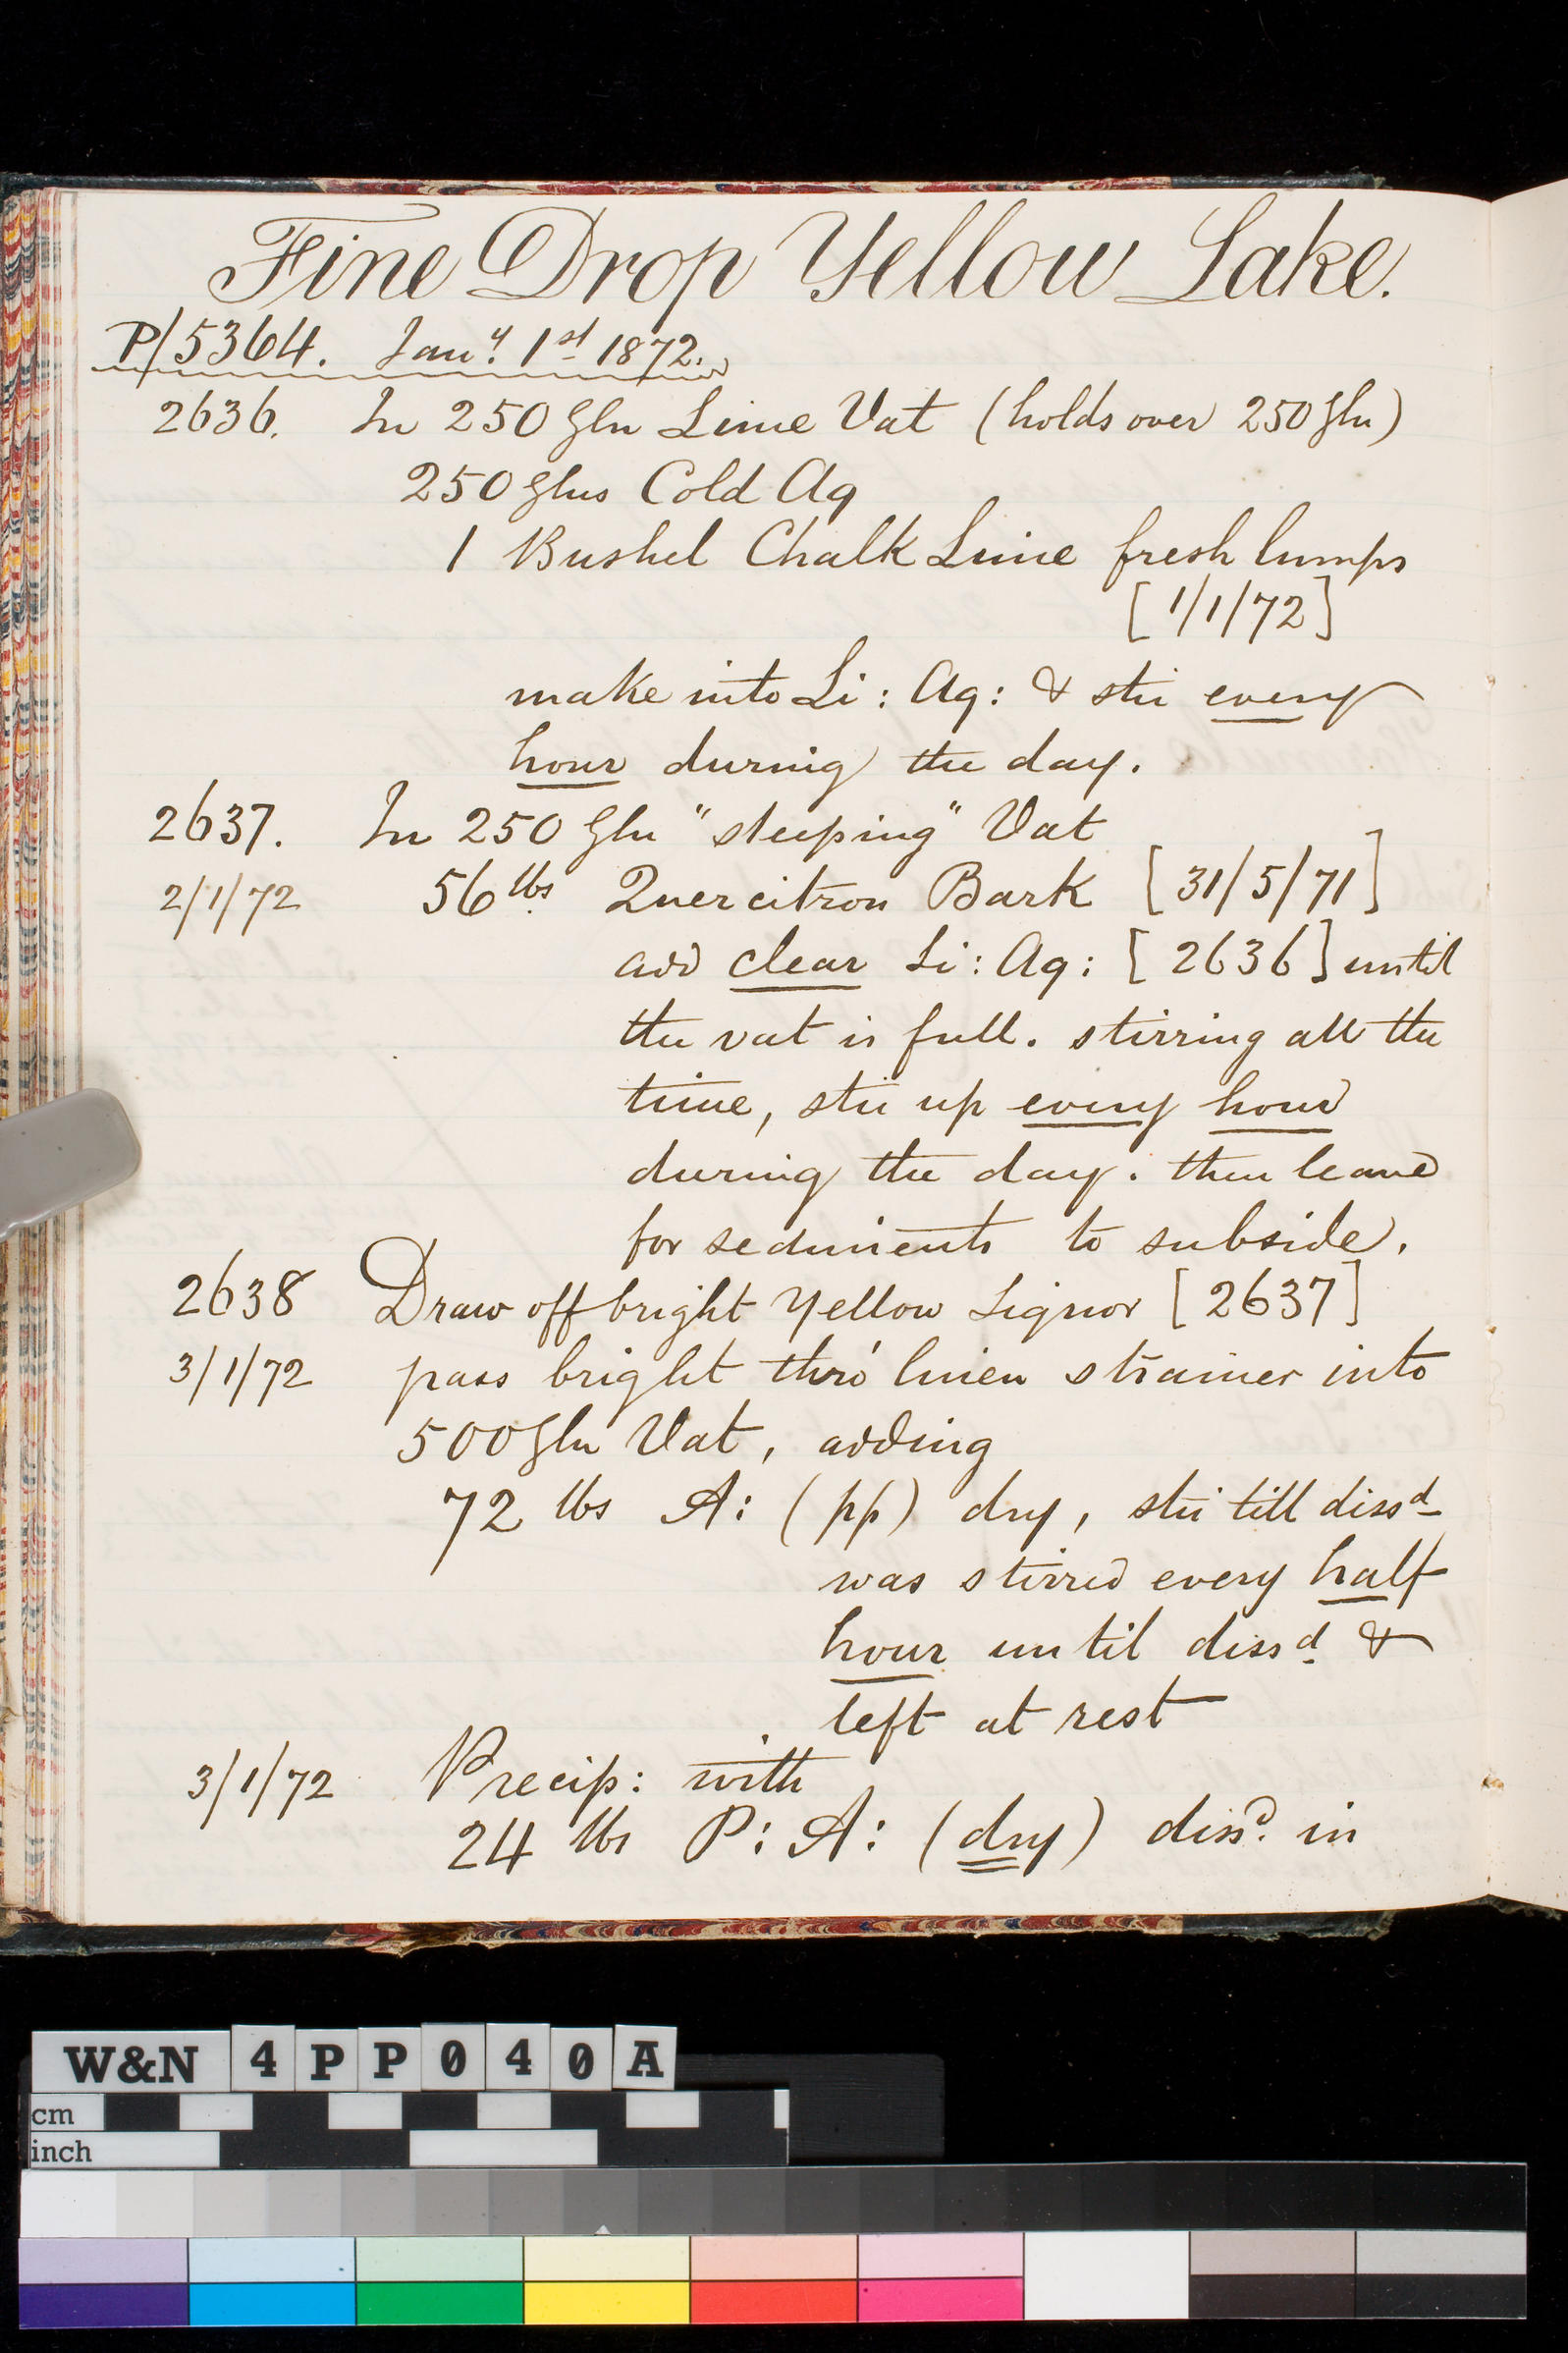 Fine Drop Yellow Lake.
P/5364. Jany. 1st 1872.
2636. In 250 Gln Lime Vat (holds over 250 Gln)
250 Glns Cold Aq
1 Bushel Chalk Lime fresh lumps
[1/1/72]
make into Li: Aq: & stir every
hour during the day.
2637. In 250 Gln "steeping" Vat
2/1/72 56 lbs. Quercitron Bark [31/5/71]
add clear Li: Aq: [2636] until
the vat is full. stirring all the
time, stir up every hour
during the day. then leave
for sediments to subside.
2638 Draw off bright Yellow Liquor [2637]
3/1/72 pass bright thro' linen strainer into
500 Gln Vat, adding
72 lbs A: (pp) dry, stir till dissd
was stirred every half
hour until dissd. &
left at rest
3/1/72 Precip: with
24 lbs P: A: (dry) dissd. in
W&N 4PP040A
cm
inch